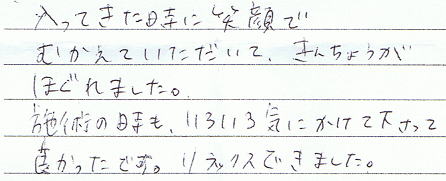 入ってきた時に笑顔で
むかえていただいて、きんちょうが
ほぐれました。
施術の時も、いろいろ気にかけて下さって
良かったです。リラックスできました。